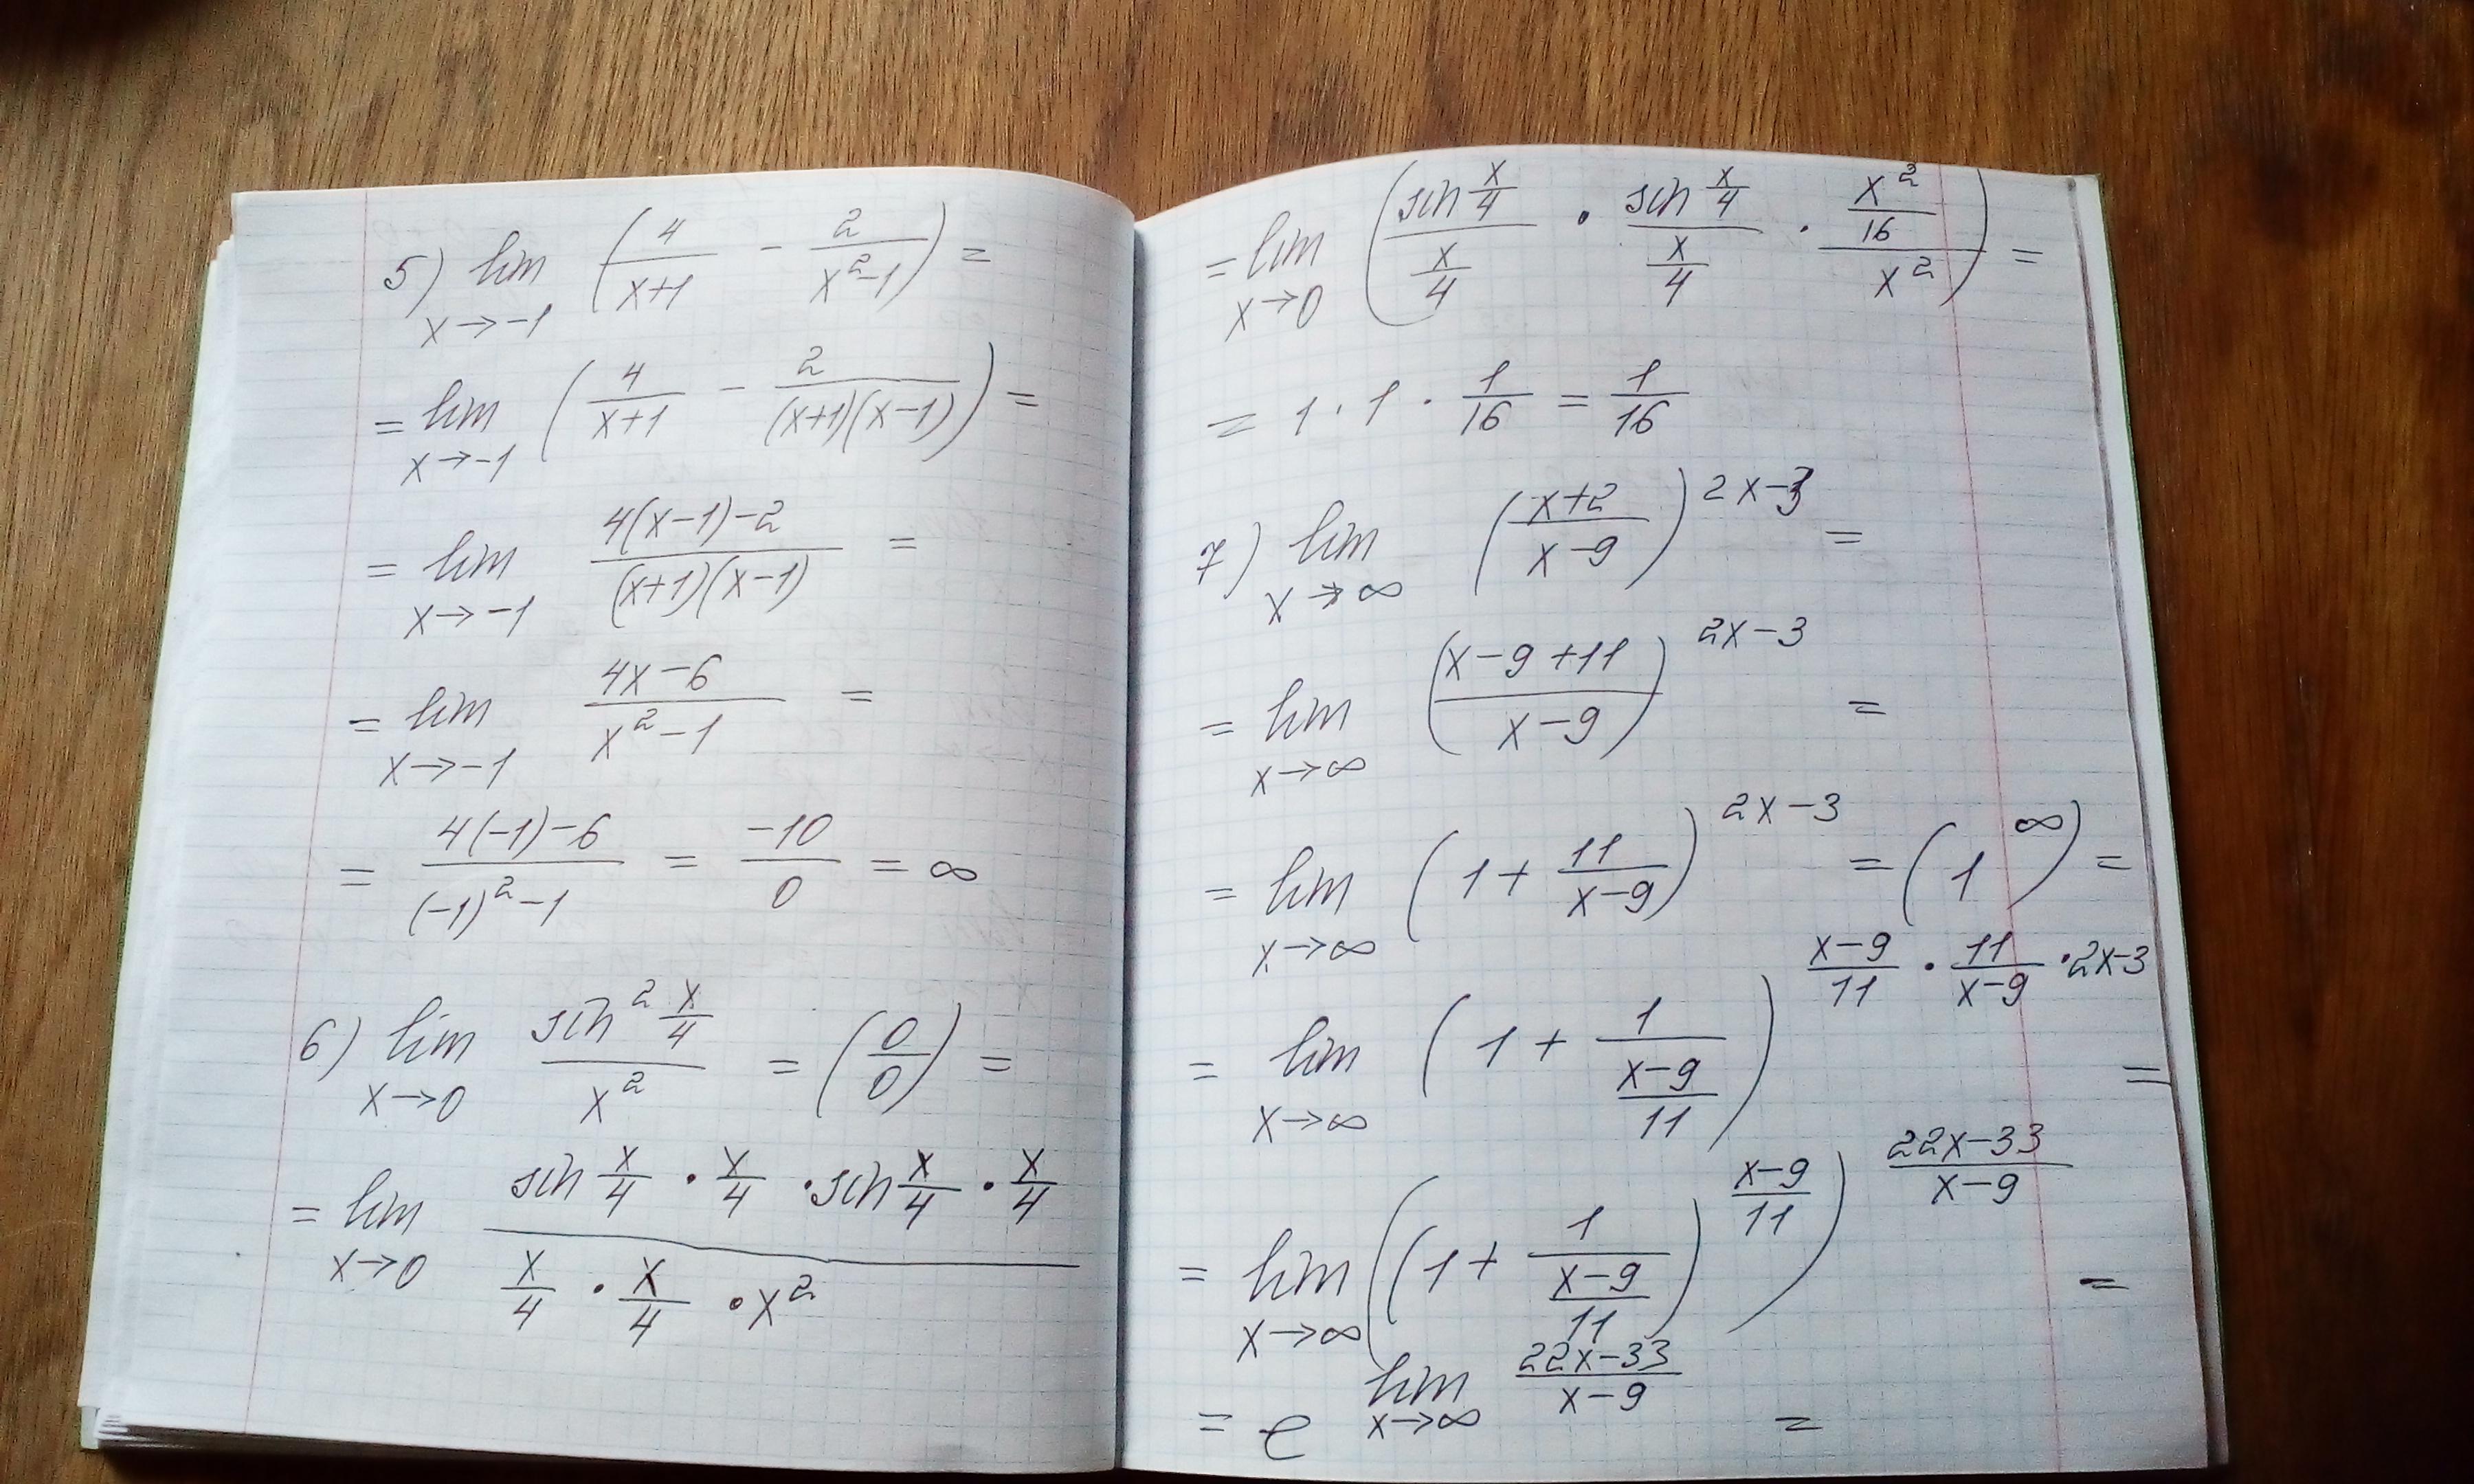 5) lim x→-1 (4/(x+1) - 2/(x²-1)) =
= lim x→-1 (4/(x+1) - 2/((x+1)(x-1))) =
= lim x→-1 (4(x-1)-2)/((x+1)(x-1)) =
= lim x→-1 (4x-6)/(x²-1) =
= (4(-1)-6)/((-1)²-1) = -10/0 = ∞
6) lim x→0 (sin² x/4)/x² = (0/0) =
= lim x→0 (sin x/4 · x/4 · sin x/4 · x/4)/(x/4 · x/4 · x²)
= lim x→0 ((sin x/4)/(x/4) · (sin x/4)/(x/4) · (x²/16)/x²) =
= 1 · 1 · 1/16 = 1/16
7) lim x→∞ ((x+2)/(x-9))^(2x-3) =
= lim x→∞ ((x-9+11)/(x-9))^(2x-3) =
= lim x→∞ (1 + 11/(x-9))^(2x-3) = (1^∞) =
= lim x→∞ (1 + 1/((x-9)/11))^((x-9)/11 · 11/(x-9) · 2x-3) =
= lim x→∞ ((1 + 1/((x-9)/11))^((x-9)/11))^((22x-33)/(x-9)) =
= e^(lim x→∞ (22x-33)/(x-9)) =